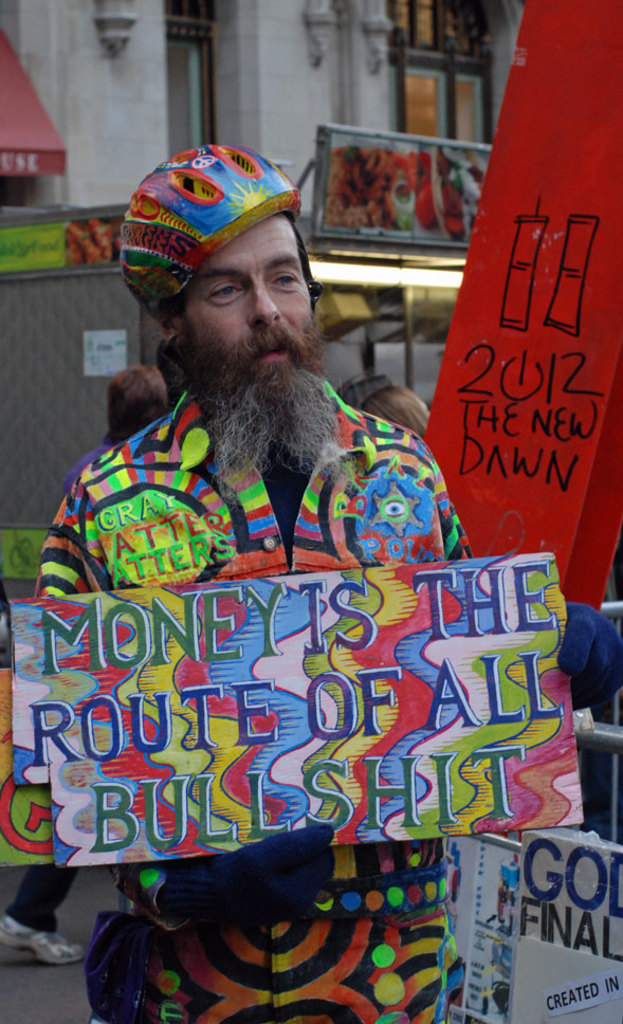 USE
2012
THE NEW
DAWN
CRAY
ATTER
ATTERS
MONEY IS THE
ROUTE OF ALL
BULLSHIT
GOD
FINAL
CREATED IN